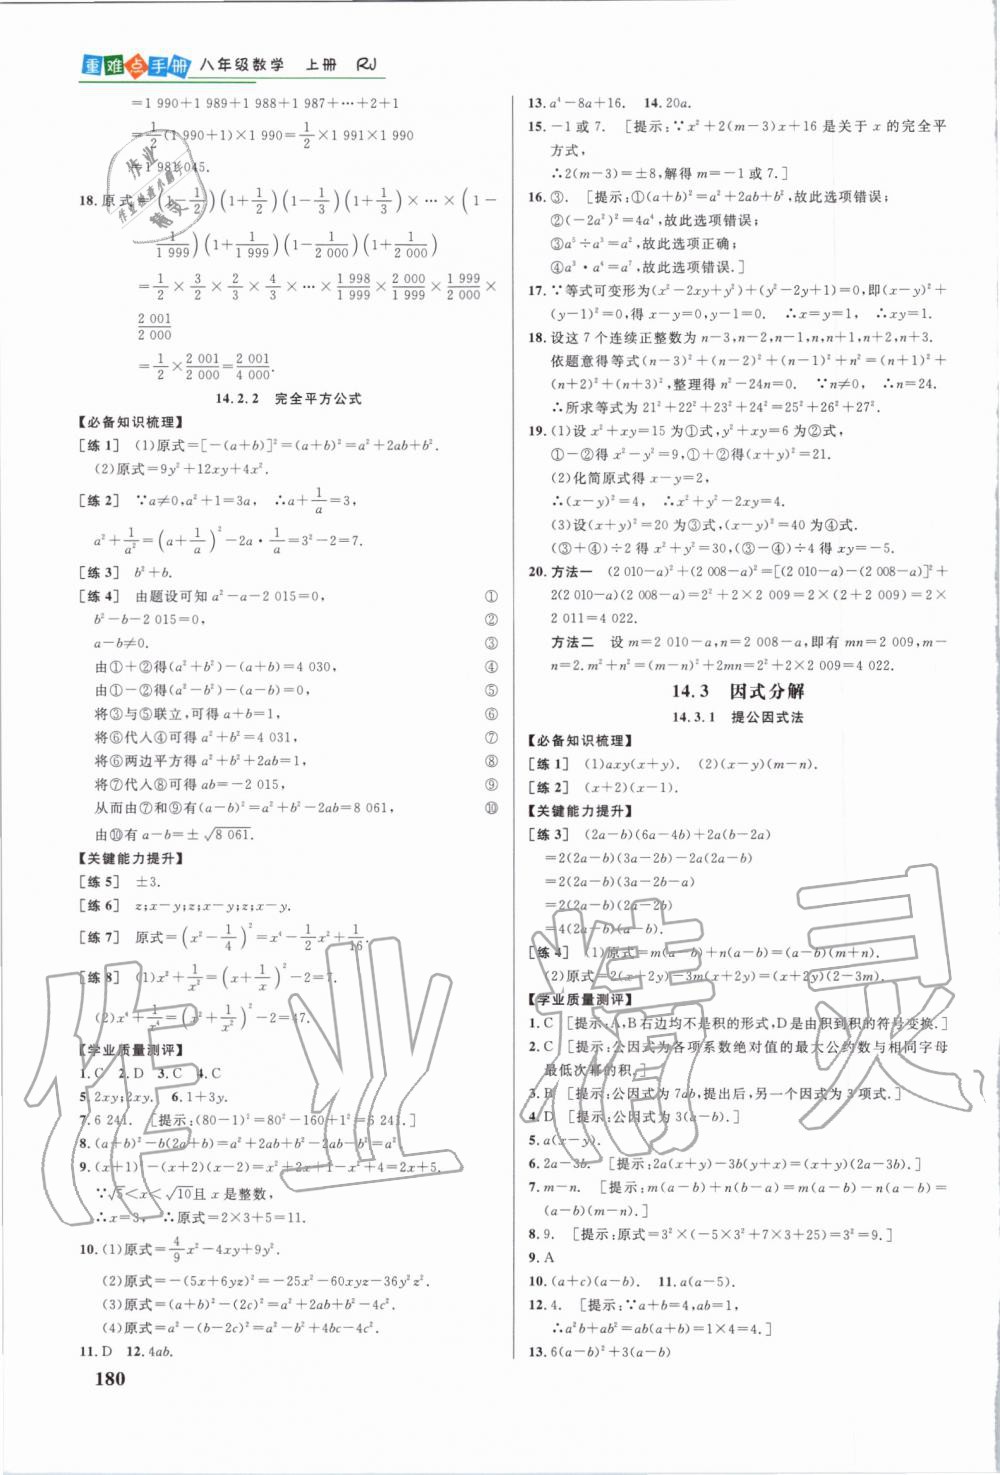 重难点手册 八年级数学 上册 RJ
=1 990+1 989+1 988+1 987+…+2+1
=1/2(1 990+1)×1 990=1/2×1 991×1 990
=1 981 045.
18.原式=(1-1/2)(1+1/2)(1-1/3)(1+1/3)×…×(1-
1/1 999)(1+1/1 999)(1-1/2 000)(1+1/2 000)
=1/2×3/2×2/3×4/3×…×1 998/1 999×2 000/1 999×1 999/2 000×
2 001/2 000
=1/2×2 001/2 000=2 001/4 000.
14.2.2 完全平方公式
【必备知识梳理】
[练1] (1)原式=[-(a+b)]²=(a+b)²=a²+2ab+b².
(2)原式=9y²+12xy+4x².
[练2] ∵a≠0,a²+1=3a, ∴a+1/a=3,
a²+1/a²=(a+1/a)²-2a·1/a=3²-2=7.
[练3] b²+b.
[练4] 由题设可知a²-a-2 015=0, ①
b²-b-2 015=0, ②
a-b≠0. ③
由①+②得(a²+b²)-(a+b)=4 030, ④
由①-②得(a²-b²)-(a-b)=0, ⑤
将③与⑤联立,可得a+b=1, ⑥
将⑥代入④可得a²+b²=4 031, ⑦
将⑥两边平方得a²+b²+2ab=1, ⑧
将⑦代入⑧可得ab=-2 015, ⑨
从而由⑦和⑨有(a-b)²=a²+b²-2ab=8 061, ⑩
由⑩有a-b=±√8 061.
【关键能力提升】
[练5] ±3.
[练6] z;x-y;z;x-y;z;x-y.
[练7] 原式=(x²-1/4)²=x⁴-1/2x²+1/16.
[练8] (1)x²+1/x²=(x+1/x)²-2=7.
(2)x⁴+1/x⁴=(x²+1/x²)²-2=47.
【学业质量测评】
1.C 2.D 3.C 4.C
5.2xy;2xy. 6.1+3y.
7.6 241. [提示:(80-1)²=80²-160+1²=6 241.]
8.(a+b)²-b(2a+b)=a²+2ab+b²-2ab-b²=a².
9.(x+1)²-(x+2)(x-2)=x²+2x+1-x²+4=2x+5.
∵√5<x<√10且x是整数,
∴x=3, ∴原式=2×3+5=11.
10.(1)原式=4/9x²-4xy+9y².
(2)原式=-(5x+6yz)²=-25x²-60xyz-36y²z².
(3)原式=(a+b)²-(2c)²=a²+2ab+b²-4c².
(4)原式=a²-(b-2c)²=a²-b²+4bc-4c².
11.D 12.4ab.
180
13.a⁴-8a+16. 14.20a.
15.-1或7. [提示:∵x²+2(m-3)x+16是关于x的完全平
方式,
∴2(m-3)=±8,解得m=-1或7.]
16.③. [提示:①(a+b)²=a²+2ab+b²,故此选项错误;
②(-2a²)²=4a⁴,故此选项错误;
③a⁵÷a³=a²,故此选项正确;
④a³·a⁴=a⁷,故此选项错误.]
17.∵等式可变形为(x²-2xy+y²)+(y²-2y+1)=0,即(x-y)²+
(y-1)²=0,得x=y=1, ∴x=y=1, ∴xy=1.
18.设这7个连续正整数为n-3,n-2,n-1,n,n+1,n+2,n+3.
依题意得等式(n-3)²+(n-2)²+(n-1)²+n²=(n+1)²+
(n+2)²+(n+3)²,整理得n²-24n=0. ∵n≠0, ∴n=24.
∴所求等式为21²+22²+23²+24²=25²+26²+27².
19.(1)设x²+xy=15为①式,y²+xy=6为②式,
①-②得x²-y²=9,①+②得(x+y)²=21.
(2)化简原式得x-y=2,
∴(x-y)²=4, ∴x²+y²-2xy=4.
(3)设(x+y)²=20为③式,(x-y)²=40为④式.
(③+④)÷2得x²+y²=30,(③-④)÷4得xy=-5.
20.方法一 (2 010-a)²+(2 008-a)²=[(2 010-a)-(2 008-a)]²+
2(2 010-a)(2 008-a)=2²+2×2 009=2×(2+2 009)=2×
2 011=4 022.
方法二 设m=2 010-a,n=2 008-a,即有mn=2 009,m-
n=2.m²+n²=(m-n)²+2mn=2²+2×2 009=4 022.
14.3 因式分解
14.3.1 提公因式法
【必备知识梳理】
[练1] (1)axy(x+y). (2)(x-y)(m-n).
[练2] (x+2)(x-1).
【关键能力提升】
[练3] (2a-b)(6a-4b)+2a(b-2a)
=2(2a-b)(3a-2b)-2a(2a-b)
=2(2a-b)(3a-2b-a)
=2(2a-b)(2a-2b)
=4(2a-b)(a-b).
[练4] (1)原式=m(a-b)+n(a-b)=(a-b)(m+n).
(2)原式=2(x+2y)-3m(x+2y)=(x+2y)(2-3m).
【学业质量测评】
1.C [提示:A,B右边均不是积的形式,D是由积到积的符号变换.]
2.C [提示:公因式为各项系数绝对值的最大公约数与相同字母
最低次幂的积.]
3.B [提示:公因式为7ab,提出后,另一个因式为3项式.]
4.D [提示:公因式为3(a-b).]
5.a(x-y).
6.2a-3b. [提示:2a(x+y)-3b(y+x)=(x+y)(2a-3b).]
7.m-n. [提示:m(a-b)+n(b-a)=m(a-b)-n(a-b)=
(a-b)(m-n).]
8.9. [提示:原式=3²×(-5×3²+7×3+25)=3²=9.]
9.A
10.(a+c)(a-b). 11.a(a-5).
12.4. [提示:∵a+b=4,ab=1,
∴a²b+ab²=ab(a+b)=1×4=4.]
13.6(a-b)²+3(a-b)
作业精灵